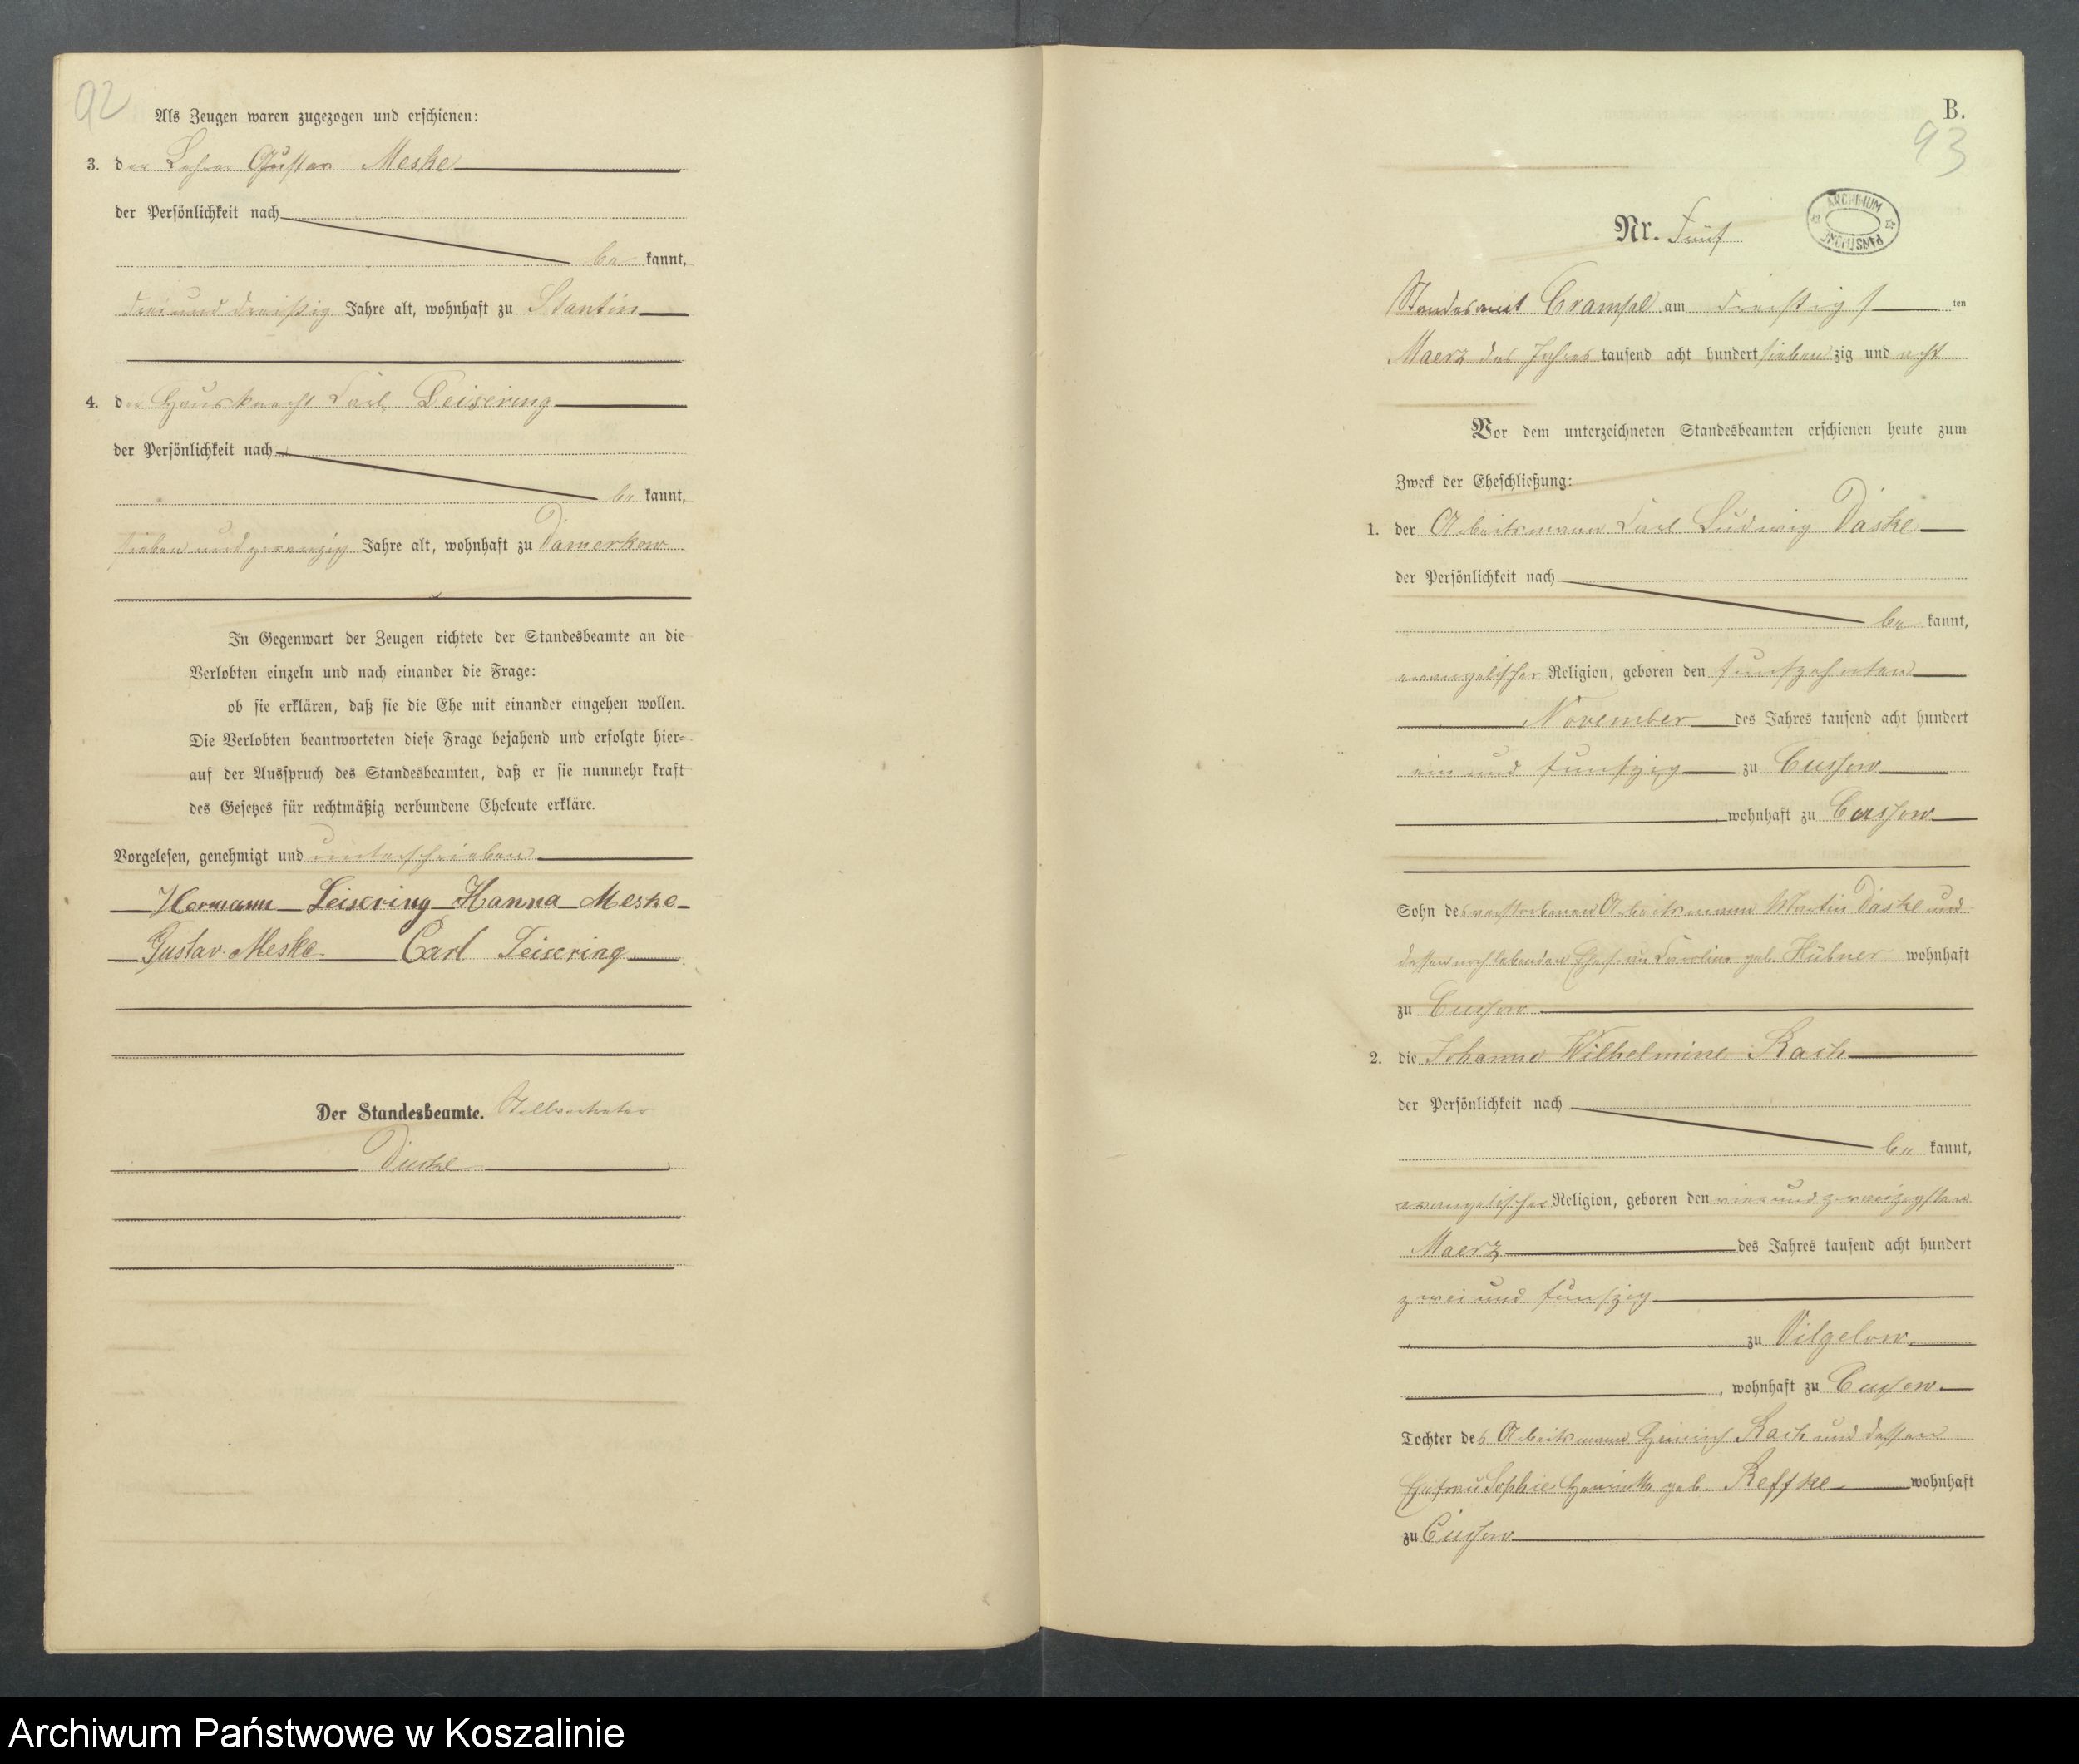 92
Als Zeugen waren zugezogen und erschienen:
3. der Lehrer Gustav Meske
der Persönlichkeit nach
be kannt,
drei und dreißig Jahre alt, wohnhaft zu Stantin
4. der Hausknecht Carl Leisering
der Persönlichkeit nach
be kannt,
sieben und zwanzig Jahre alt, wohnhaft zu Damerkow
In Gegenwart der Zeugen richtete der Standesbeamte an die
Verlobten einzeln und nach einander die Frage:
ob sie erklären, daß sie die Ehe mit einander eingehen wollen.
Die Verlobten beantworteten diese Frage bejahend und erfolgte hier-
auf der Ausspruch des Standesbeamten, daß er sie nunmehr kraft
des Gesetzes für rechtmäßig verbundene Eheleute erkläre.
Vorgelesen, genehmigt und unterschrieben
Hermann Leisering Hanna Meske
Gustav Meske. Carl Leisering
Der Standesbeamte. Stellvertreter
B.
93
ARCHIWUM PAŃSTWOWE
Nr. Fünf
Standesamt Crampe am dreißigs ten
Maerz des Jahres tausend acht hundert sieben zig und acht
Vor dem unterzeichneten Standesbeamten erschienen heute zum
Zweck der Eheschließung:
1. der Arbeitsmann Carl Ludwig Daske
der Persönlichkeit nach
be kannt,
evangelischer Religion, geboren den funfzehnten
November des Jahres tausend acht hundert
ein und funfzig zu Cussow
, wohnhaft zu Cussow
Sohn des verstorbenen Arbeitsmann Martin Daske und
dessen noch lebenden Ehefrau Caroline geb. Hübner wohnhaft
zu Cussow
2. die Johanne Wilhelmine Rach
der Persönlichkeit nach
be kannt,
evangelischer Religion, geboren den vier und zwanzigsten
Maerz des Jahres tausend acht hundert
zwei und funfzig
zu Vilgelow
, wohnhaft zu Cussow
Tochter des Arbeitsmann Heinrich Rach und dessen
Ehefrau Sophie Henriette geb. Reffke wohnhaft
zu Cussow
Archiwum Państwowe w Koszalinie